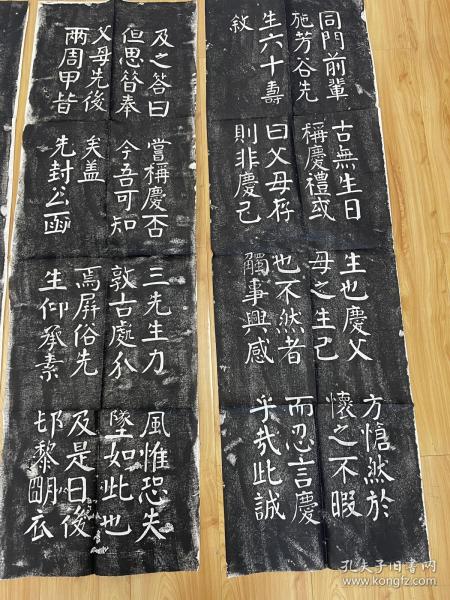 同門前輩
施芳谷先
生六十壽
敘
古無生日
稱慶禮或
曰父母存
則非慶己
生也慶父
母之生己
也不然者
觸事興感
方愴然於
懷之不暇
而忍言慶
乎哉此誠
及之答曰
但思昔奉
父母先後
兩周甲皆
嘗稱慶否
今吾可知
矣盖
先封公函
三先生力
敦古處亦
焉屏俗先
生仰承素
風惟恐失
墜如此也
及是日後
邨黎朙衣
孔夫子旧书网
www.kongfz.com